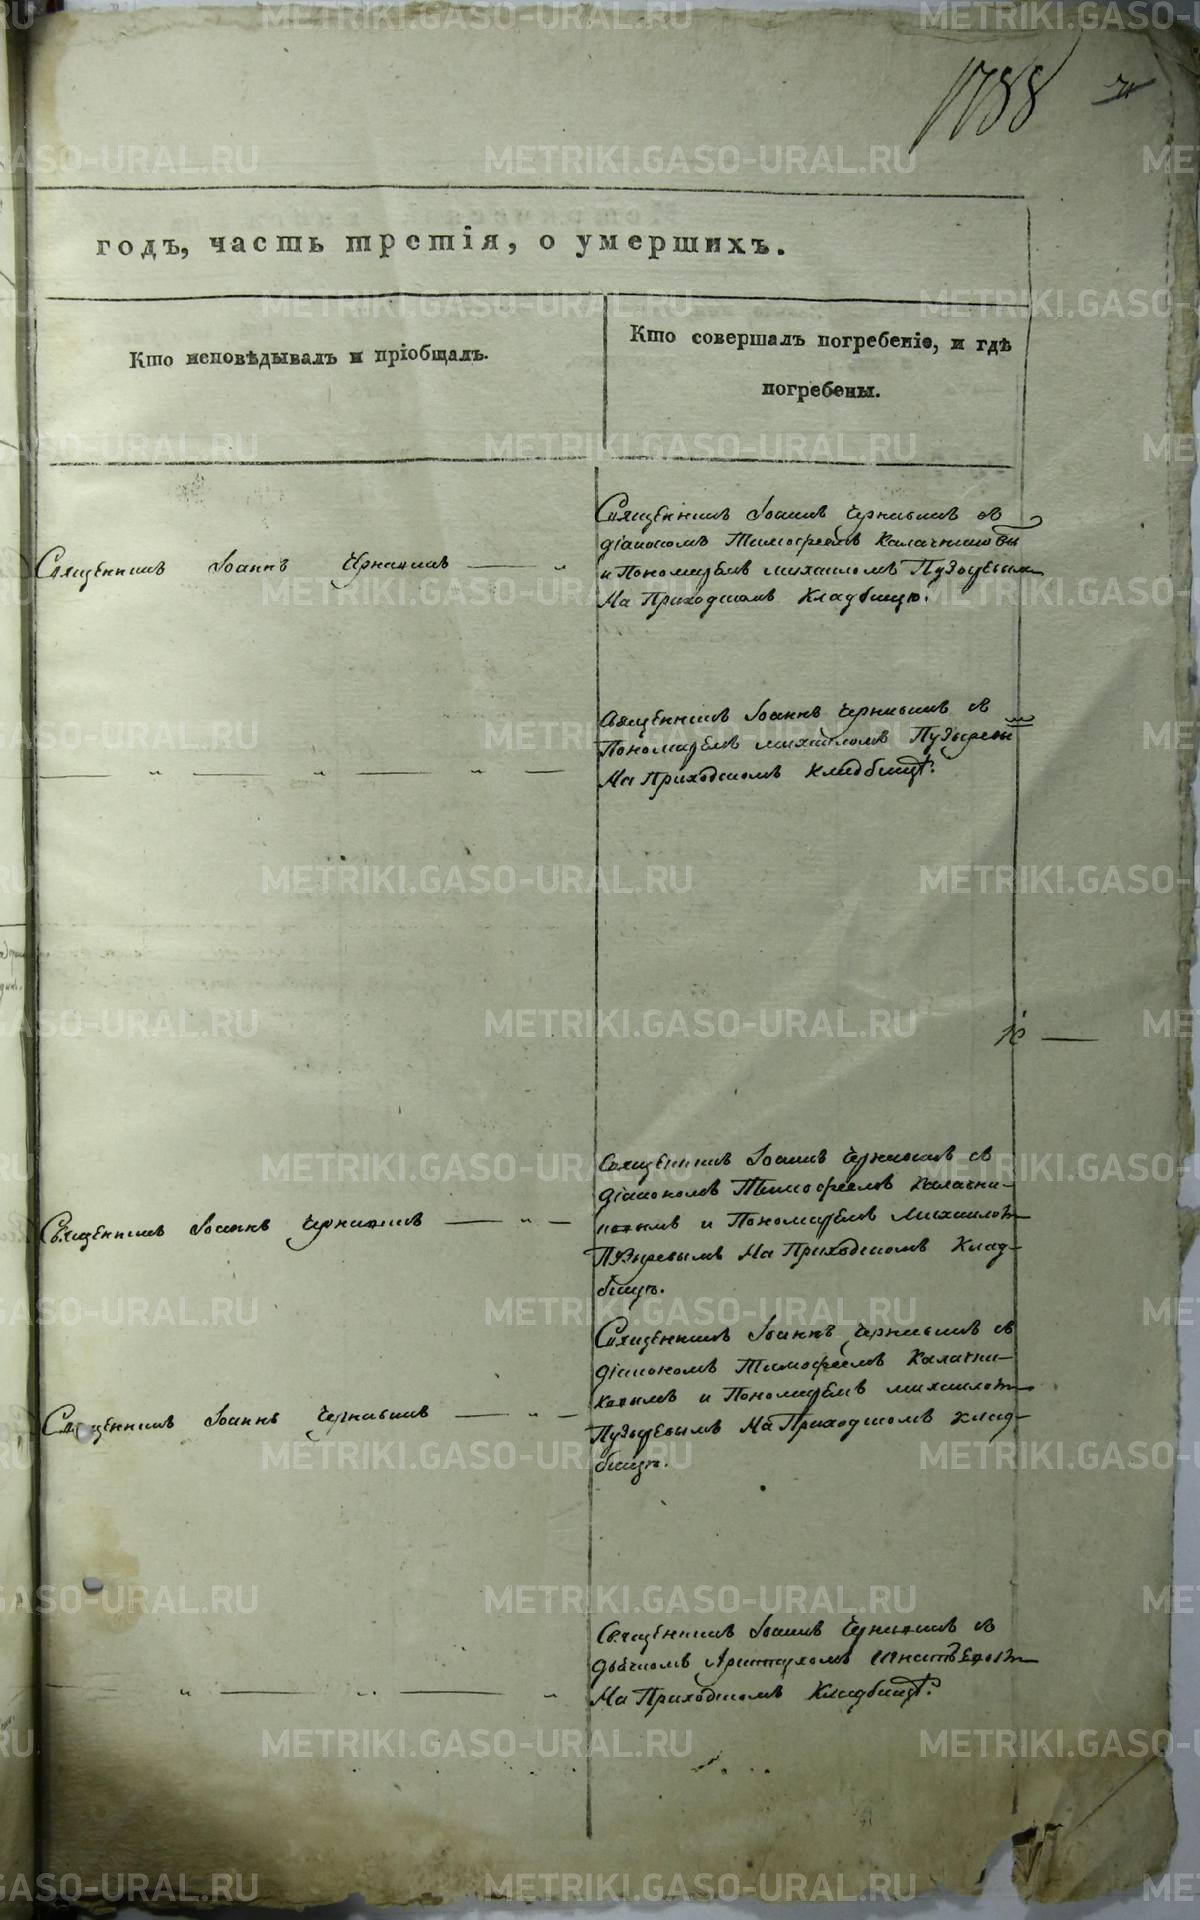 1788
годъ, часть третія, о умершихъ.
Кто исповѣдывалъ и пріобщалъ.
Кто совершалъ погребеніе, и гдѣ
погребены.
Священникъ Іоаннъ Чернавинъ
Священникъ Іоаннъ Чернавинъ съ
діакономъ Тимофеемъ Калачниковы
и Пономаремъ Михаиломъ Пузыревым
На Приходскомъ Кладбищѣ.
Священникъ Іоаннъ Чернавинъ съ
Пономаремъ Михаиломъ Пузыревы
На Приходскомъ Кладбищѣ.
Священникъ Іоаннъ Чернавинъ
Священникъ Іоаннъ Чернавинъ съ
діакономъ Тимофеемъ Калачни-
ковымъ и Пономаремъ Михаилом
Пузыревымъ На Приходскомъ Клад-
бищѣ.
Священникъ Іоаннъ Чернавинъ
Священникъ Іоаннъ Чернавинъ съ
діакономъ Тимофеемъ Калачни-
ковымъ и Пономаремъ Михаилом
Пузыревымъ На Приходскомъ Клад-
бищѣ.
Священникъ Іоаннъ Чернавинъ съ
дьячкомъ
На Приходскомъ Кладбищѣ.
METRIKI.GASO-URAL.RU